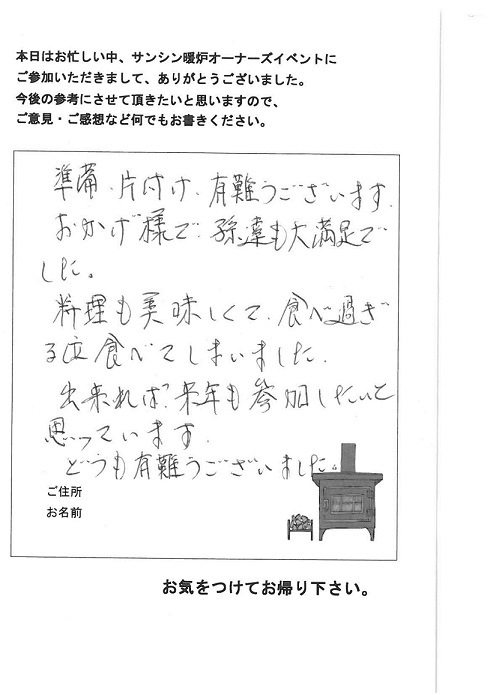 本日はお忙しい中、サンシン暖炉オーナーズイベントに
ご参加いただきまして、ありがとうございました。
今後の参考にさせて頂きたいと思いますので、
ご意見・ご感想など何でもお書きください。
準備、片付け、有難うございます。
おかげ様で、孫達も大満足で
した。
料理も美味しくて、食べ過ぎ
る位食べてしまいました。
出来れば、来年も参加したいと
思っています。
どうも有難うございました。
ご住所
お名前
お気をつけてお帰り下さい。